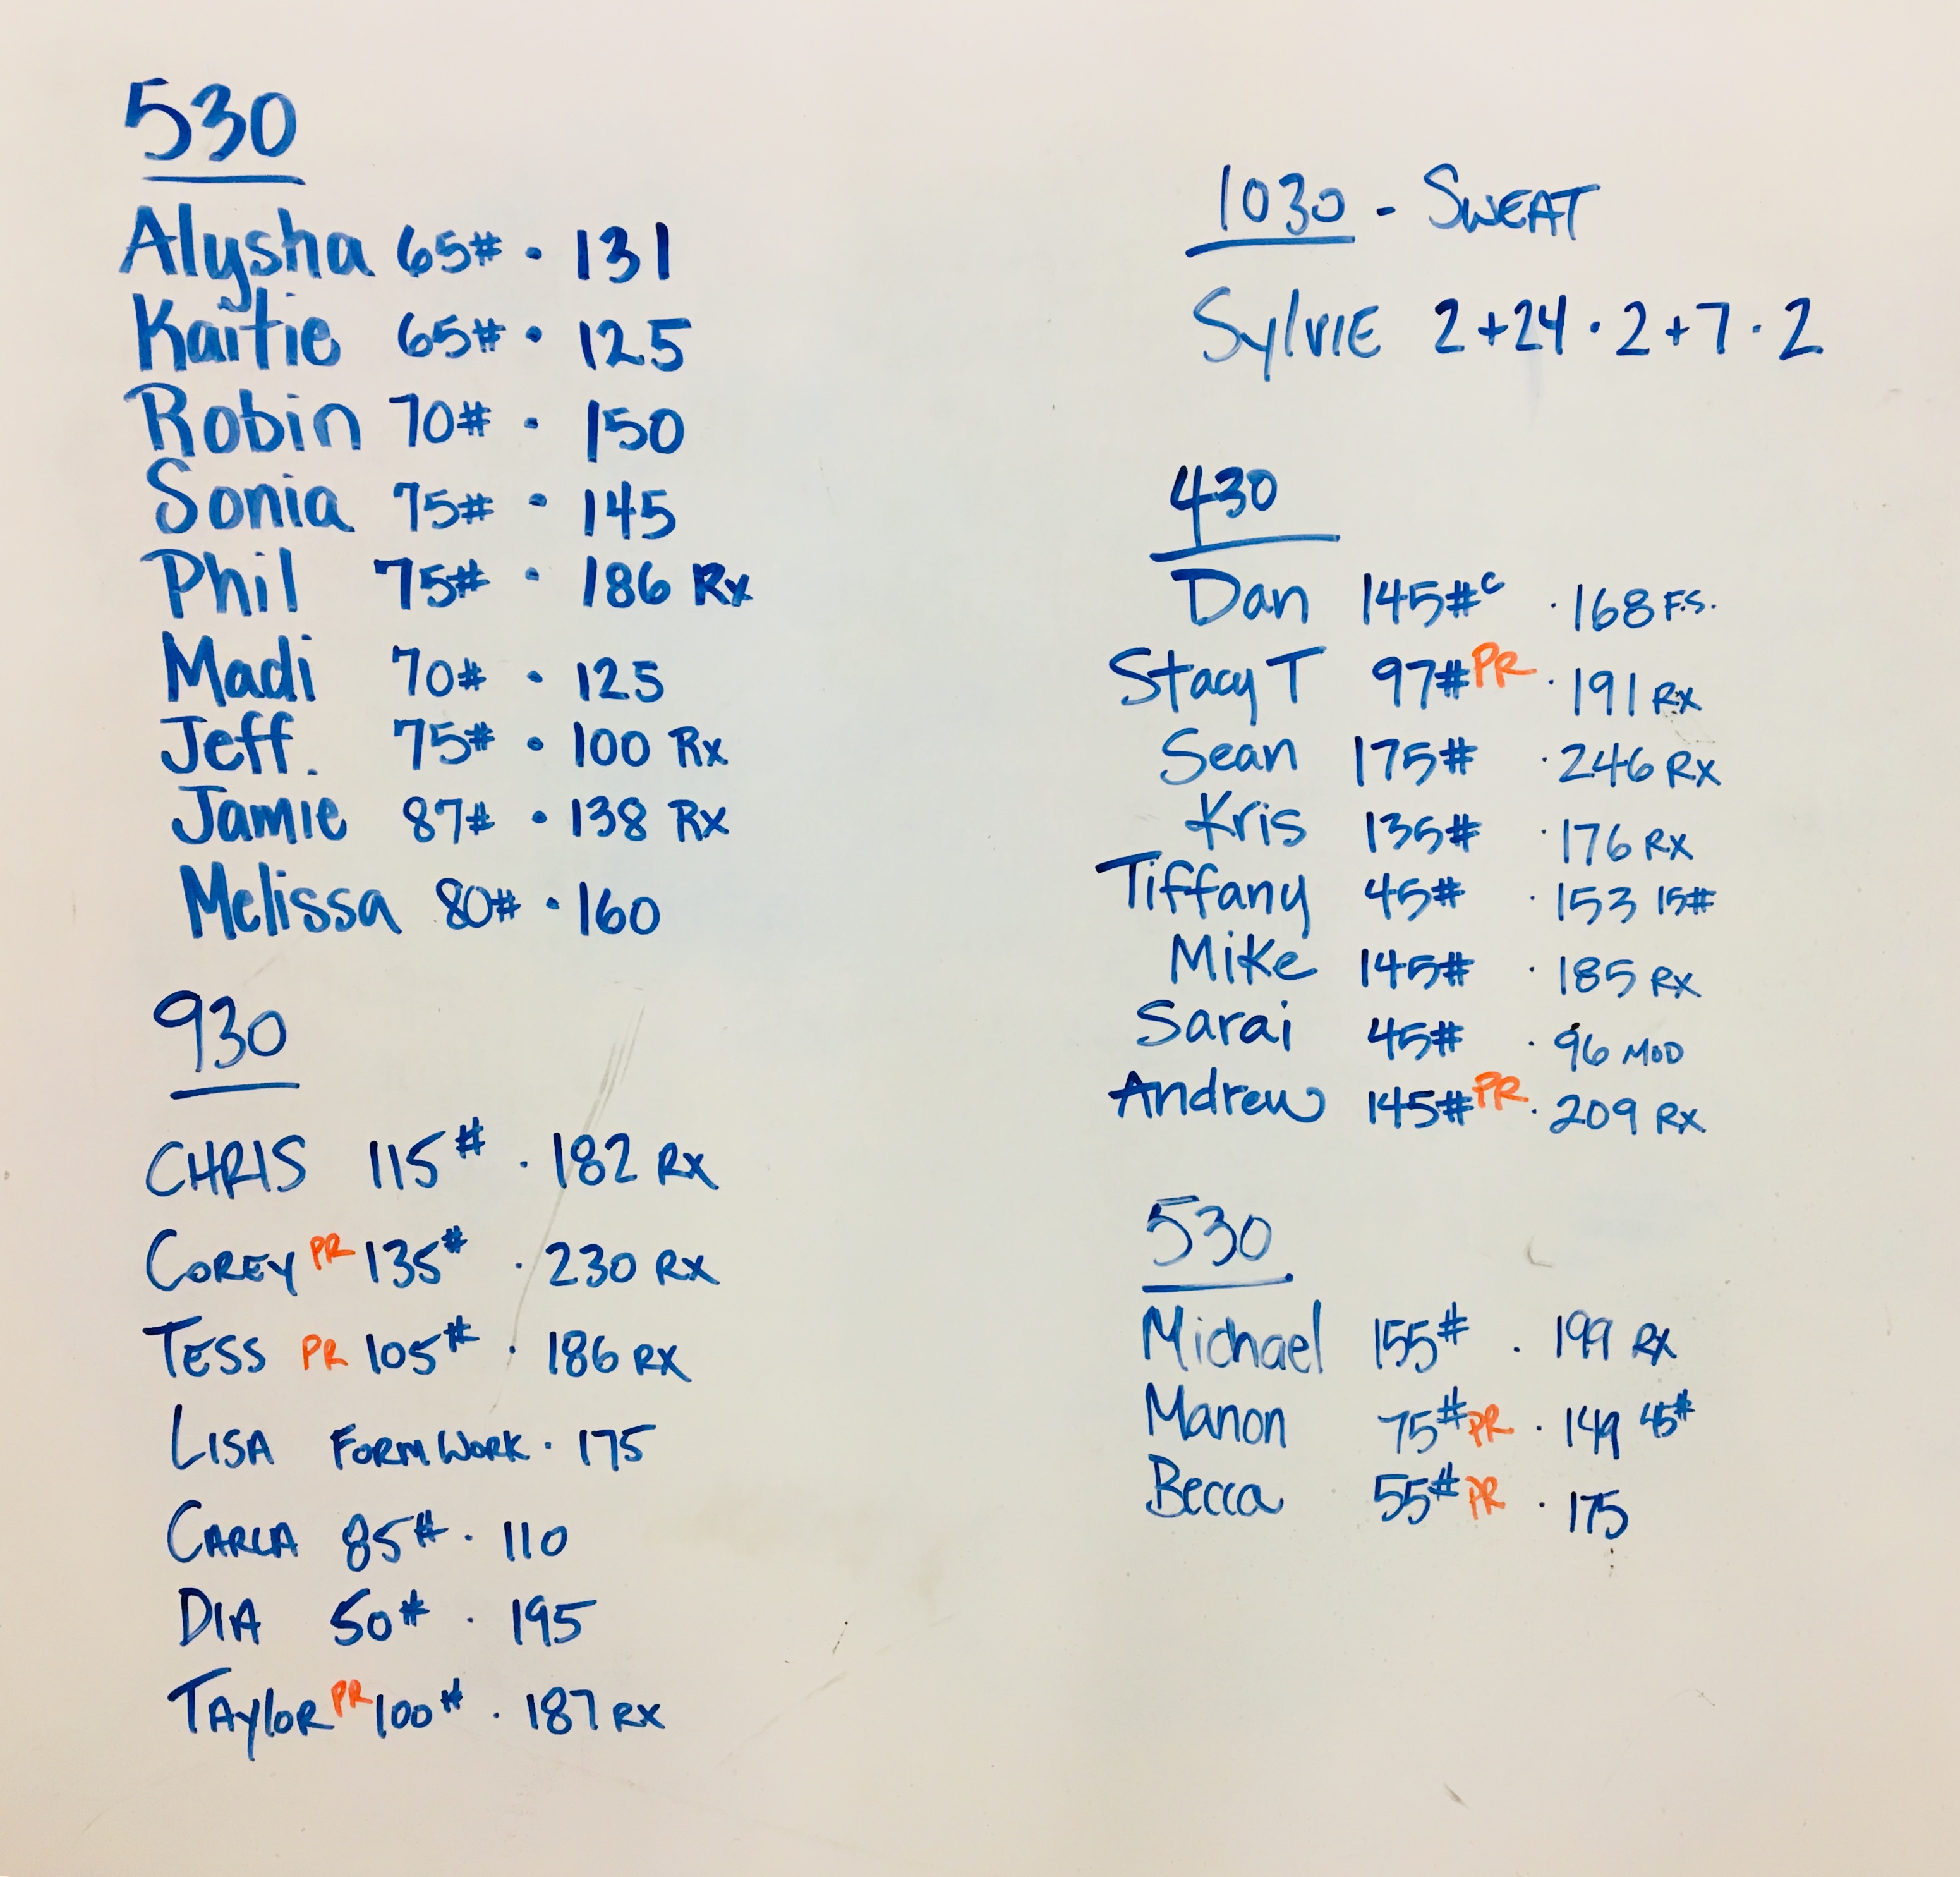 530
Alysha 65# • 131
Kaitie 65# • 125
Robin 70# • 150
Sonia 75# • 145
Phil 75# • 186 Rx
Madi 70# • 125
Jeff. 75# • 100 Rx
Jamie 87# • 138 Rx
Melissa 80# • 160
930
CHRIS 115# · 182 RX
COREY PR 135# · 230 RX
TESS PR 105# · 186 RX
LISA FORM WORK · 175
CARLA 85# · 110
DIA 50# · 195
TAylOR PR 100# · 187 RX
1030 - SWEAT
SylVIE 2+24 · 2+7 · 2
430
Dan 145# c · 168 F.S.
Stacy T 97# PR · 191 RX
Sean 175# · 246 RX
Kris 135# · 176 RX
Tiffany 45# · 153 15#
Mike 145# · 185 RX
Sarai 45# · 96 MOD
Andrew 145# PR · 209 RX
530
Michael 155# · 199 RX
Manon 75# PR · 149 45#
Becca 55# PR · 175